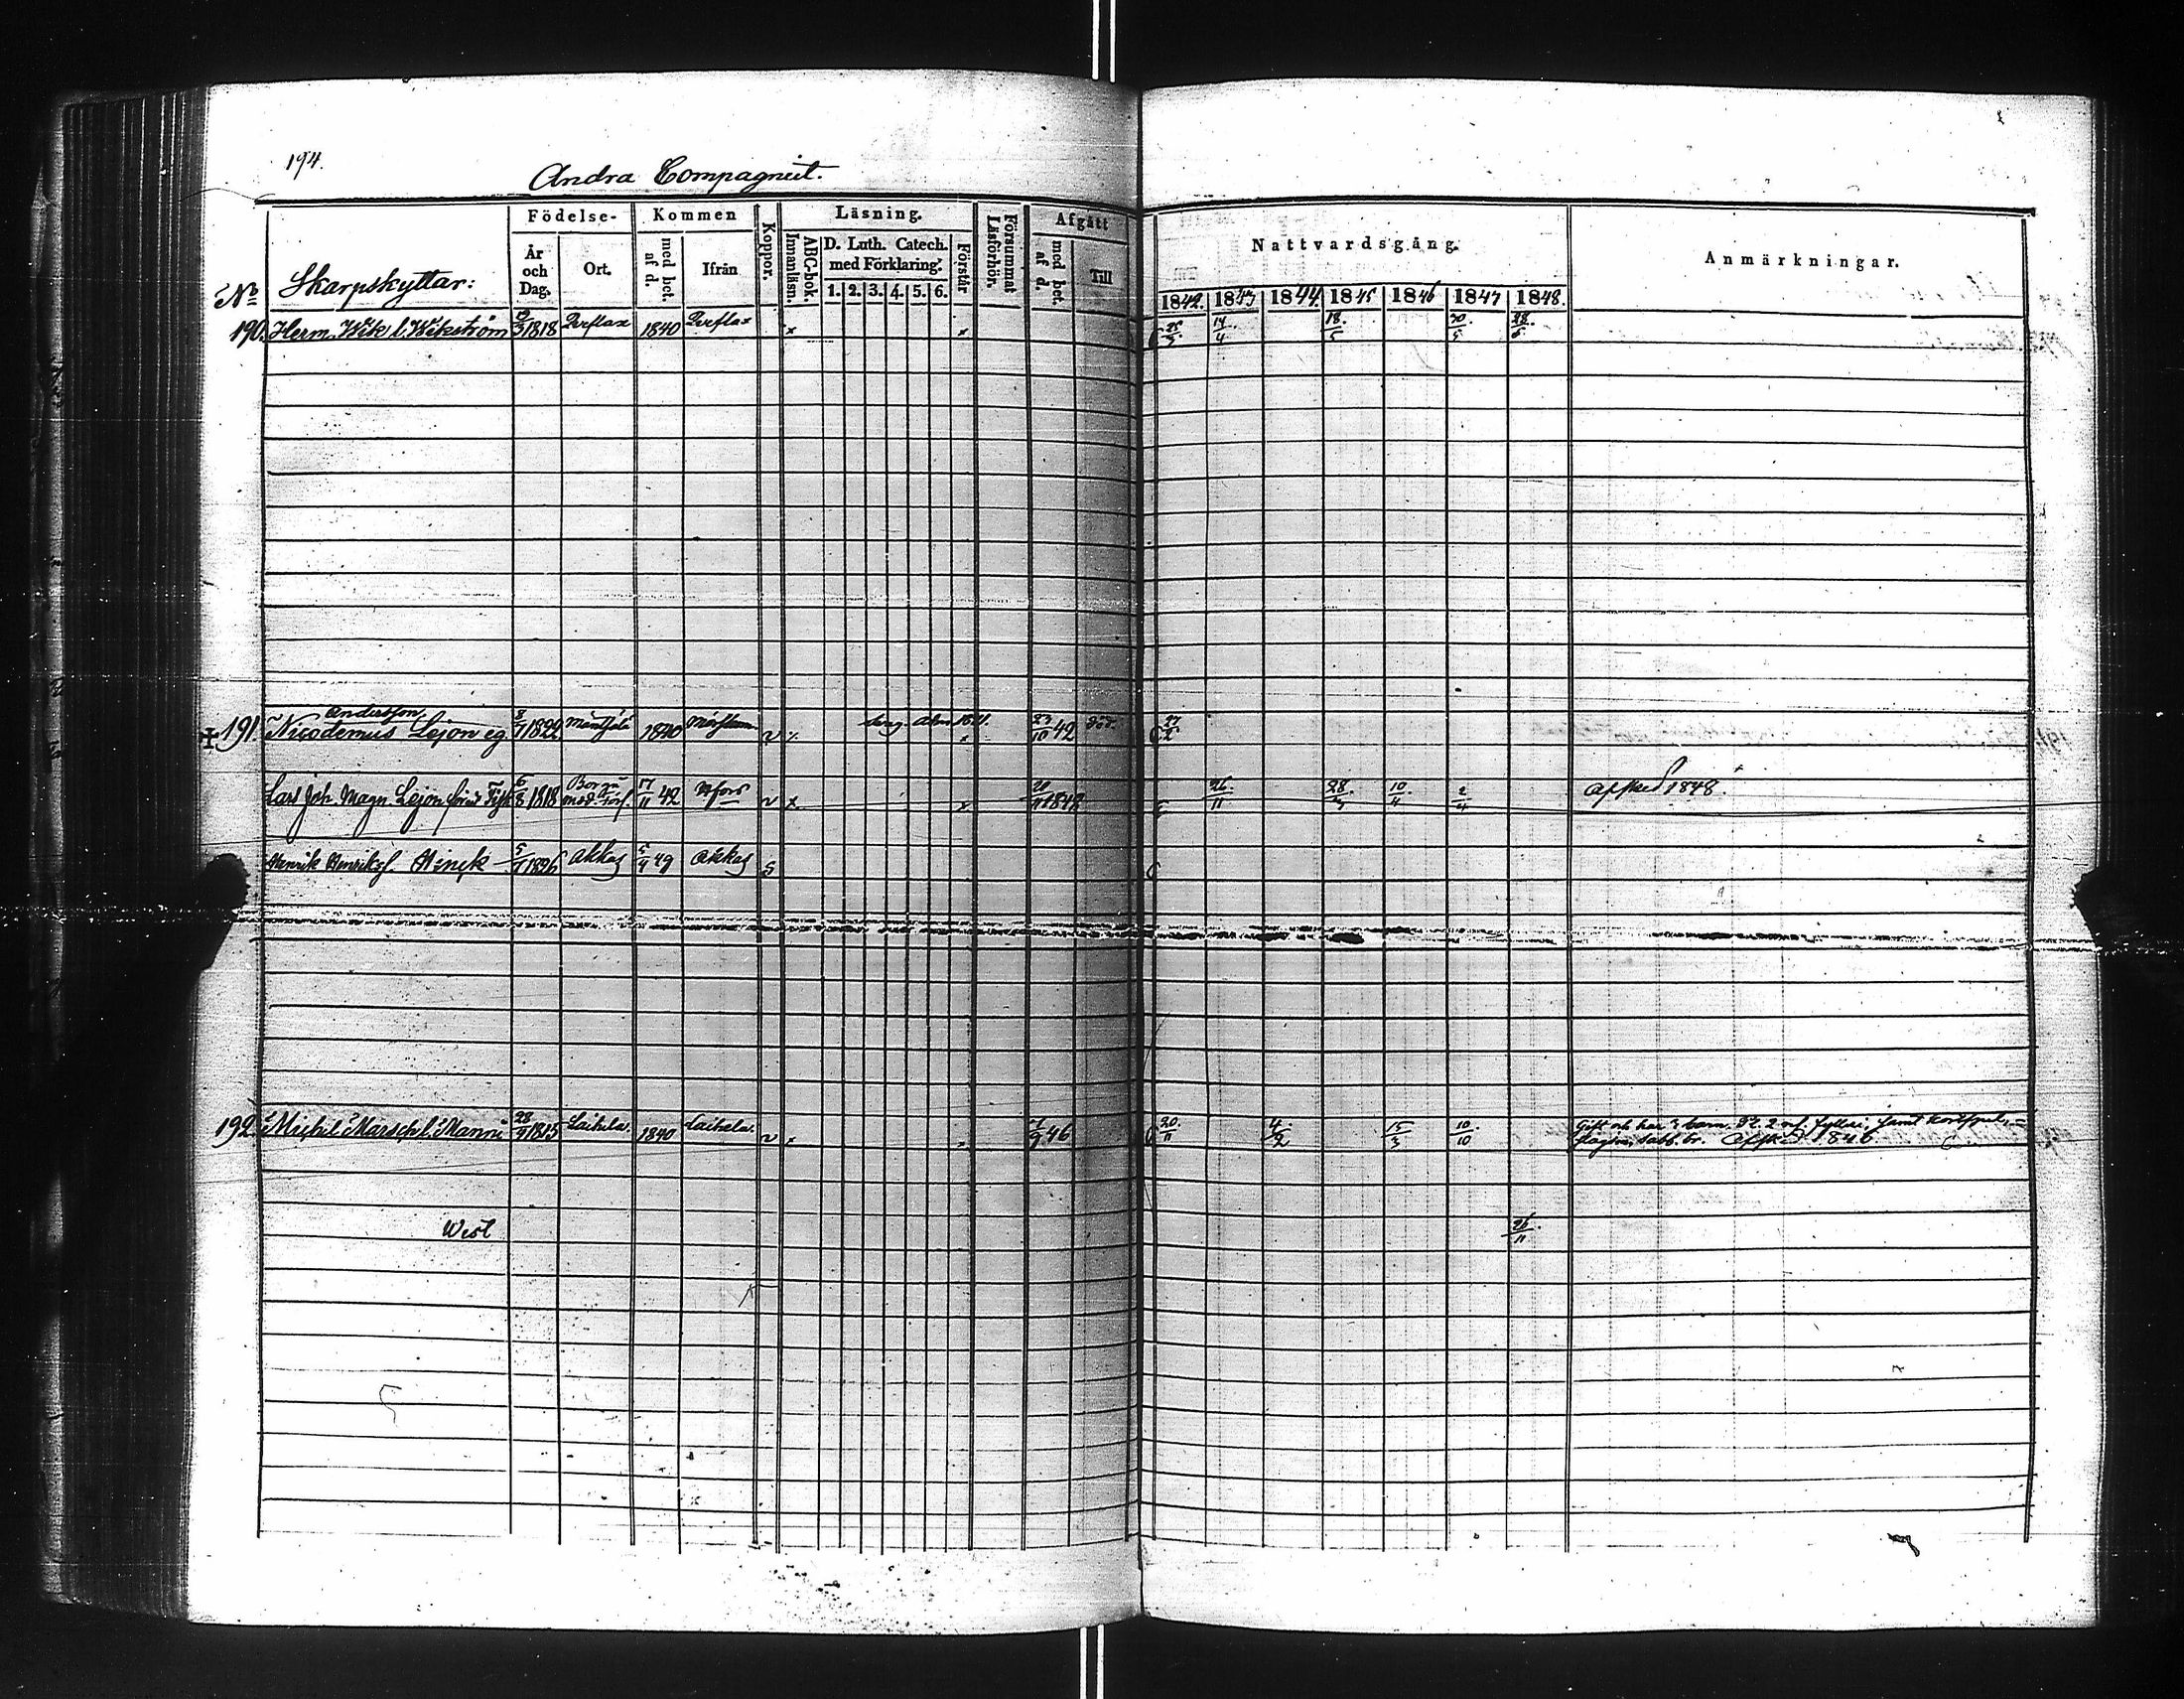 194.
Andra Compagniet.
No Skarpskyttar:
Födelse- År och Dag. Ort.
Kommen med bet. af d. Ifrån
Koppor.
Läsning. ABC-bok. Innanläsn. D. Luth. Catech. med Förklaring. 1. 2. 3. 4. 5. 6. Förstår
Försummat Läsförhör.
Afgått med bet. af d. Till
Nattvardsgång. 1842. 1843 1844. 1845 1846 1847 1848.
Anmärkningar.
190. Herm. Wik l. Wikström 1818 Qveflax 1840 Qveflax x x 14/4 18/5 30/5 28/5
Andersson
191. Nicodemus Lejon eg. 8/7 1822 1840 v 23/10 42 död. 27/2
Lars Joh. Magn. Lejon förut Fisk 6/8 1818 Borgå 17/11 42 Hfors v x x 1848 26/11 28/3 10/4 2/4 Afsked 1848.
Henrik Henriksf. 5/1 1826 Akkas 5/4 49 Akkas s
192. Michel Marsch l. Manni 28/9 1815 Laihela 1840 Laihela v x 46 20/11 4/2 15/3 10/10 Gift och har 3 barn. fylleri, samt
sabb. br. Afsked 1846
West 26/11